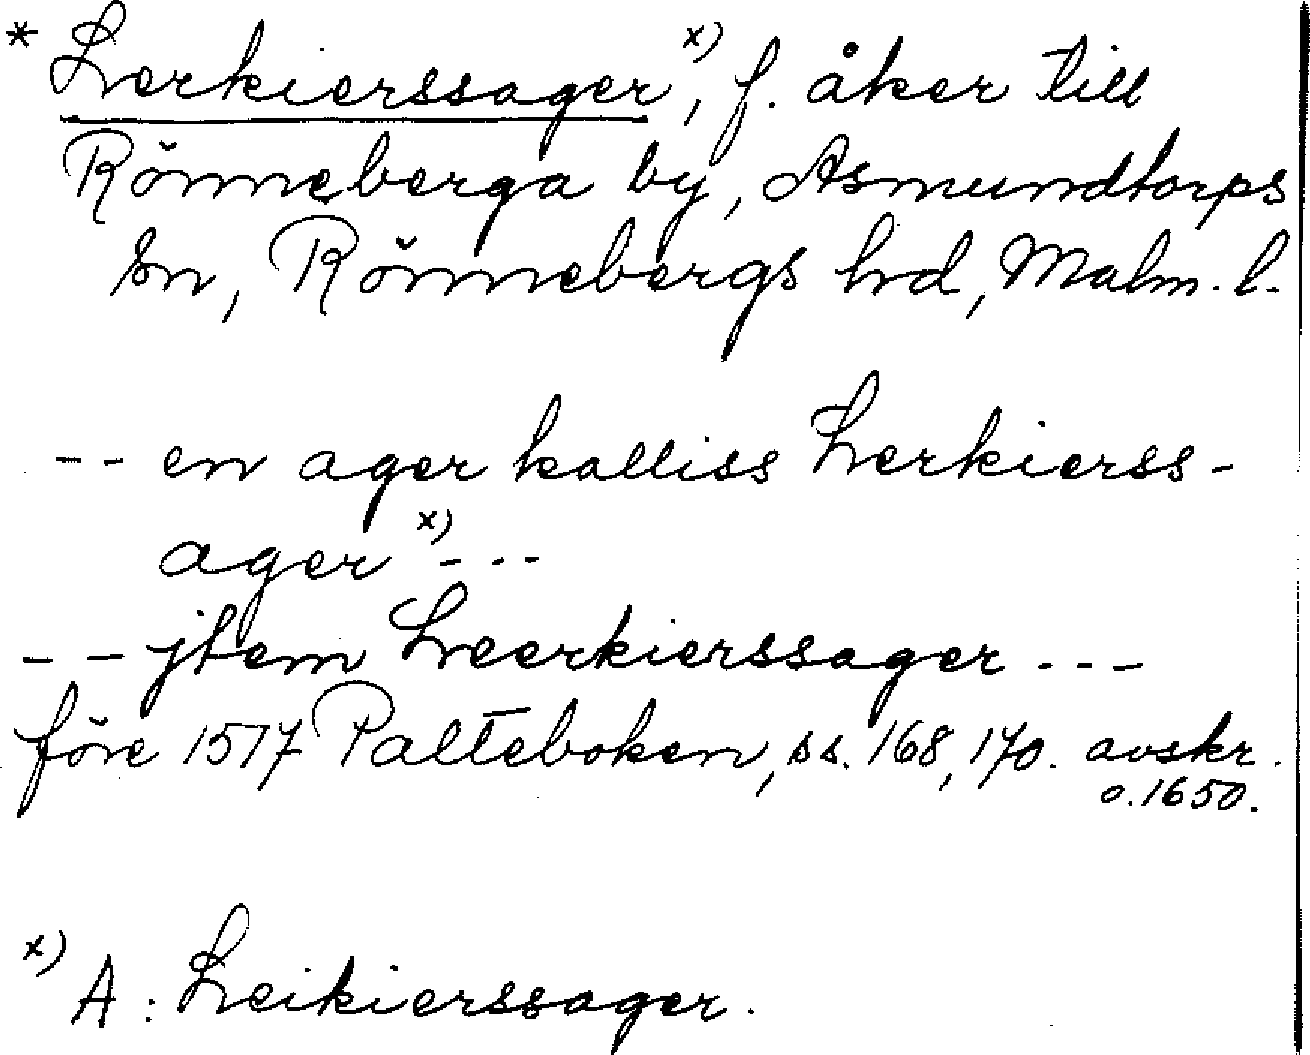 * Lerkierssager x), f. åker till
Rönneberga by, Asmundtorps
sn, Rönnebergs hd, Malm. l.
-- en ager kalliss Lerkierss-
ager x) ---
-- jtem Leerkierssager ---
före 1517 Palteboken, ss. 168, 170. avskr.
o. 1650.
x) A: Leikierssager.